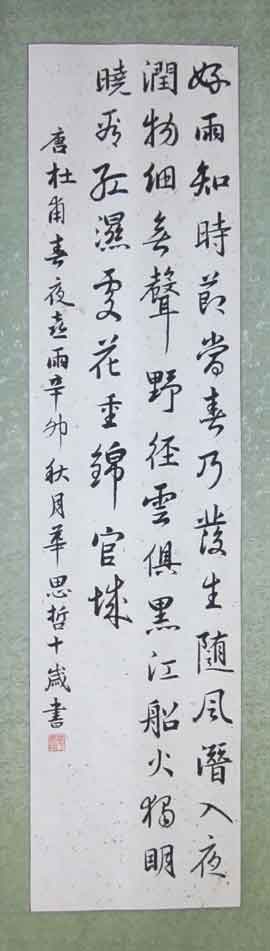 好雨知時節當春乃發生隨風潛入夜
潤物細無聲野徑雲俱黑江船火獨明
曉看紅濕處花重錦官城
唐杜甫春夜喜雨辛卯秋月華思哲十歲書